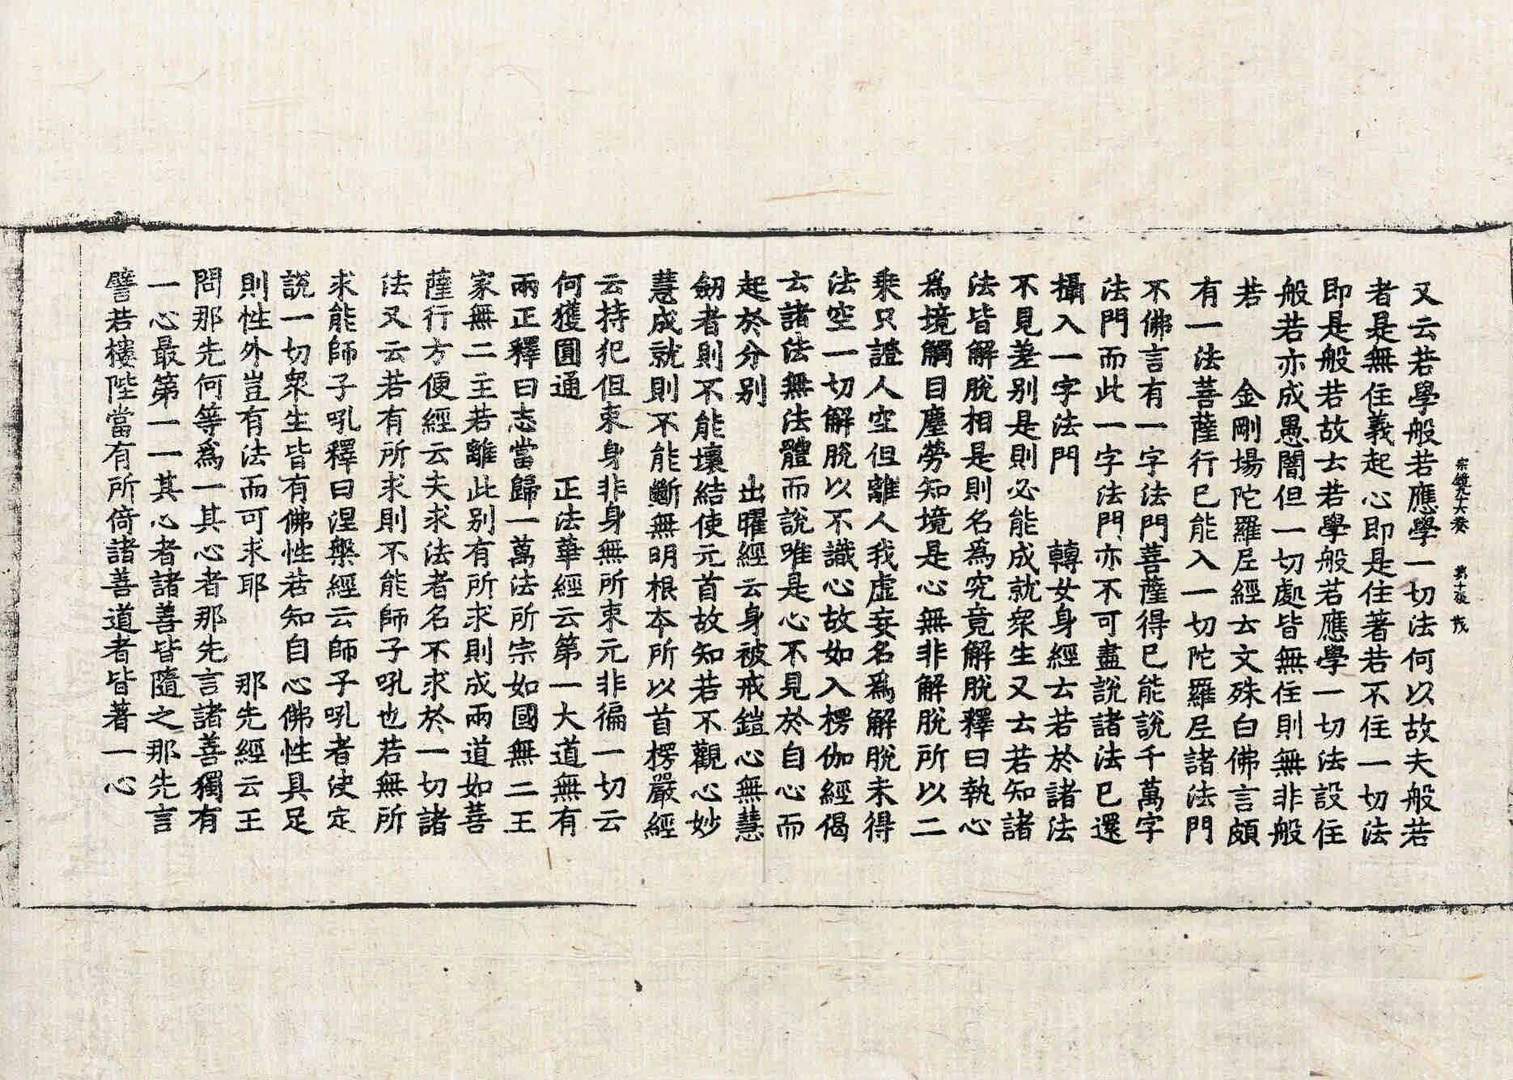 宗鏡九十六卷 第十張 茂
又云若學般若應學一切法何以故夫般若
者是無住義起心即是住著若不住一切法
即是般若故云若學般若應學一切法設住
般若亦成愚闇但一切處皆無住則無非般
若 金剛場陀羅尼經云文殊白佛言頗
有一法菩薩行已能入一切陀羅尼諸法門
不佛言有一字法門菩薩得已能說千萬字
法門而此一字法門亦不可盡說諸法已還
攝入一字法門 轉女身經云若於諸法
不見差別是則必能成就衆生又云若知諸
法皆解脫相是則名為究竟解脫釋曰執心
為境觸目塵勞知境是心無非解脫所以二
乘只證人空但離人我虛妄名為解脫未得
法空一切解脫以不識心故如入楞伽經偈
云諸法無法體而說唯是心不見於自心而
起於分別 出曜經云身被戒鎧心無慧
劒者則不能壞結使元首故知若不觀心妙
慧成就則不能斷無明根本所以首楞嚴經
云持犯但束身非身無所束元非徧一切云
何獲圓通 正法華經云第一大道無有
兩正釋曰志當歸一萬法所宗如國無二王
家無二主若離此別有所求則成兩道如善
薩行方便經云夫求法者名不求於一切諸
法又云若有所求則不能師子吼也若無所
求能師子吼釋曰涅槃經云師子吼者決定
說一切衆生皆有佛性若知自心佛性具足
則性外豈有法而可求耶 那先經云王
問那先何等為一其心者那先言諸善獨有
一心最第一一其心者諸善皆隨之那先言
譬若樓陛當有所倚諸善道者皆著一心